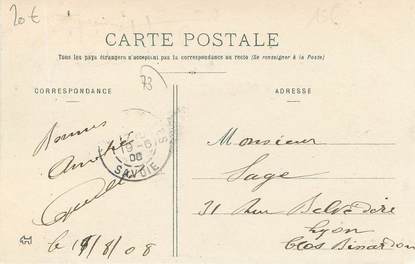 20€
15€
CARTE POSTALE
Tous les pays étrangers n'acceptent pas la correspondance au recto (Se renseigner à la Poste)
73
CORRESPONDANCE
ADRESSE
Bonnes
Amitiés
19-8
08
SAVOIE
le 19/8/08
Monsieur
Sage
31 Rue Belvédère
Lyon
Clos Bissardon